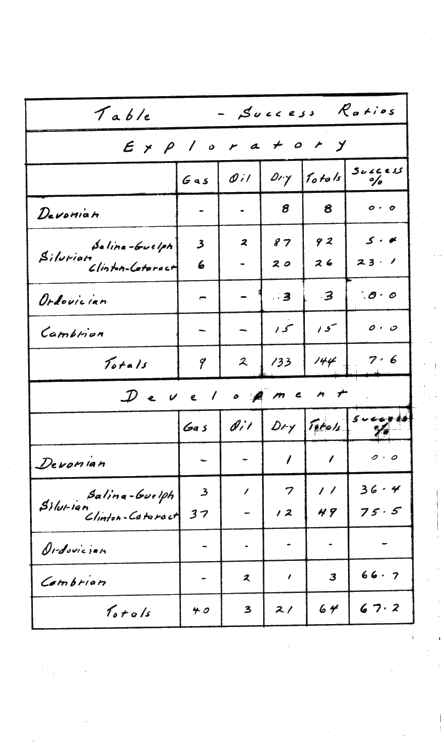 Table - Success Ratios
Exploratory
Gas Oil Dry Totals Success %
Devonian - - 8 8 0.0
Silurian Salina-Guelph 3 2 87 92 5.4
Clinton-Cataract 6 - 20 26 23.1
Ordovician - - 3 3 0.0
Cambrian - - 15 15 0.0
Totals 9 2 133 144 7.6
Development
Gas Oil Dry Totals Success %
Devonian - - 1 1 0.0
Silurian Salina-Guelph 3 1 7 11 36.4
Clinton-Cataract 37 - 12 49 75.5
Ordovician - - - - -
Cambrian - 2 1 3 66.7
Totals 40 3 21 64 67.2